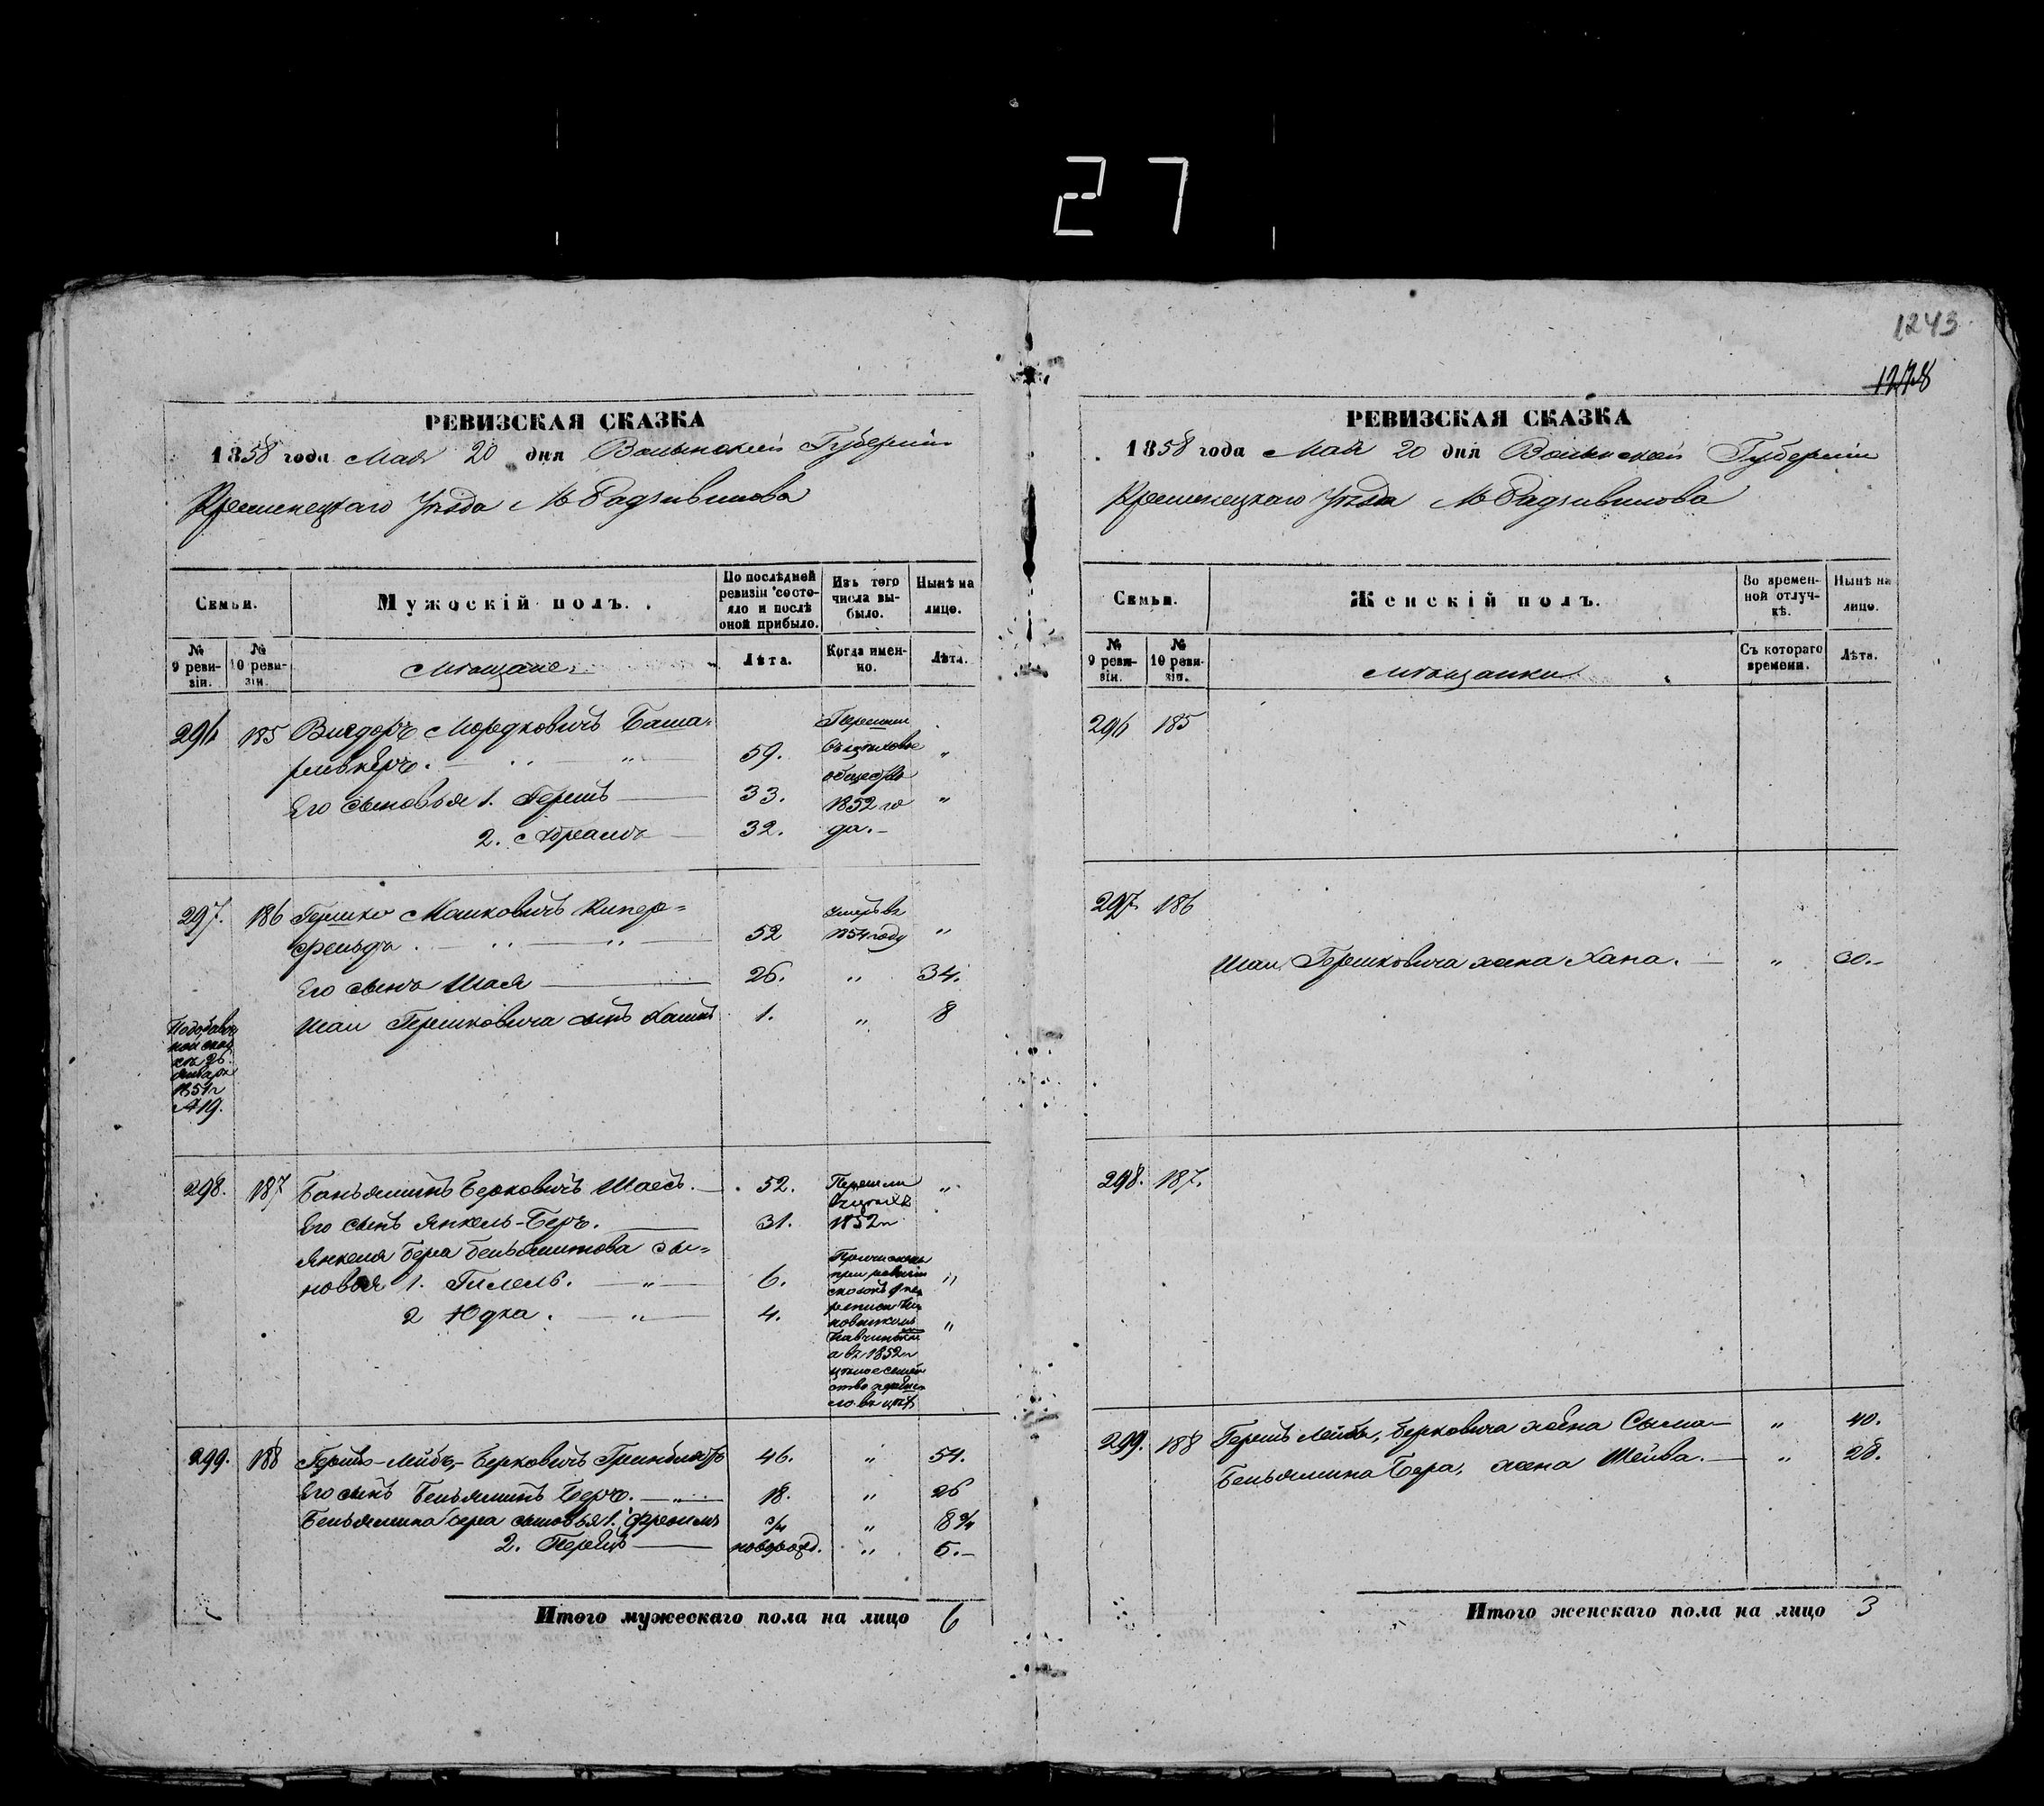 27
1243
1278
РЕВИЗСКАЯ СКАЗКА
1858 года Мая 20 дня Волынской Губерніи
Кременецкаго Уѣзда М Радзивилова
Семьи.
Мужескій полъ.
По послѣдней ревизіи состояло и послѣ оной прибыло.
Изъ того числа выбыло.
Нынѣ на лицо.
№ 9 ревизіи.
№ 10 ревизіи.
Мѣщане
Лѣта.
Когда именно.
Лѣта.
296 185 Вигдоръ Мордковичъ Баша-
59. "
Его сыновья 1. Гершъ 33. "
2. Абрамъ 32.
Перешли
общество
1852 го
да.
297. 186 Гершко Машковичъ Купер=
фельдъ. 52 умеръ въ 1854 году "
Его сынъ Шая 26. " 34.
Шаи Гершковича сынъ Хаимъ 1. " 8
26.
Января
1851 г
№ 19.
298. 187 Беньяминъ Берковичъ Шаесъ. 52. "
Его сынъ Янкель-Беръ. 31.
Перешли
1852 г
Янкеля Бера Беньяминова сы=
новья 1. Гилель. 6. "
2 Юдка. 4. "
при ревизіи
а въ 1852 г
цѣлое семей
ство
299. 188 Гершъ-Лейбъ, Берковичъ Гринблятъ 46. " 54.
Его сынъ Беньяминъ Беръ. 18. " 26
Беньямина Бера сыновья 1. Фроимъ 3/4 " 8 3/4
2. Перецъ новорожд. " 5.
Итого мужескаго пола на лицо 6
РЕВИЗСКАЯ СКАЗКА
1858 года Мая 20 дня Волынской Губерніи
Кременецкаго Уѣзда М Радзивилова
Семьи.
Женскій полъ.
Во временной отлучкѣ.
Нынѣ на лицо.
№ 9 ревизіи.
№ 10 ревизіи.
Мѣщанки
Съ котораго времени.
Лѣта.
296 185
297 186
Шаи Гершковича жена Хана. " 30.
298. 187.
299. 188 Гершъ Лейбы, Берковича жена Сыма " 40.
Беньямина Бера, жена Шейва. " 28.
Итого женскаго пола на лицо 3